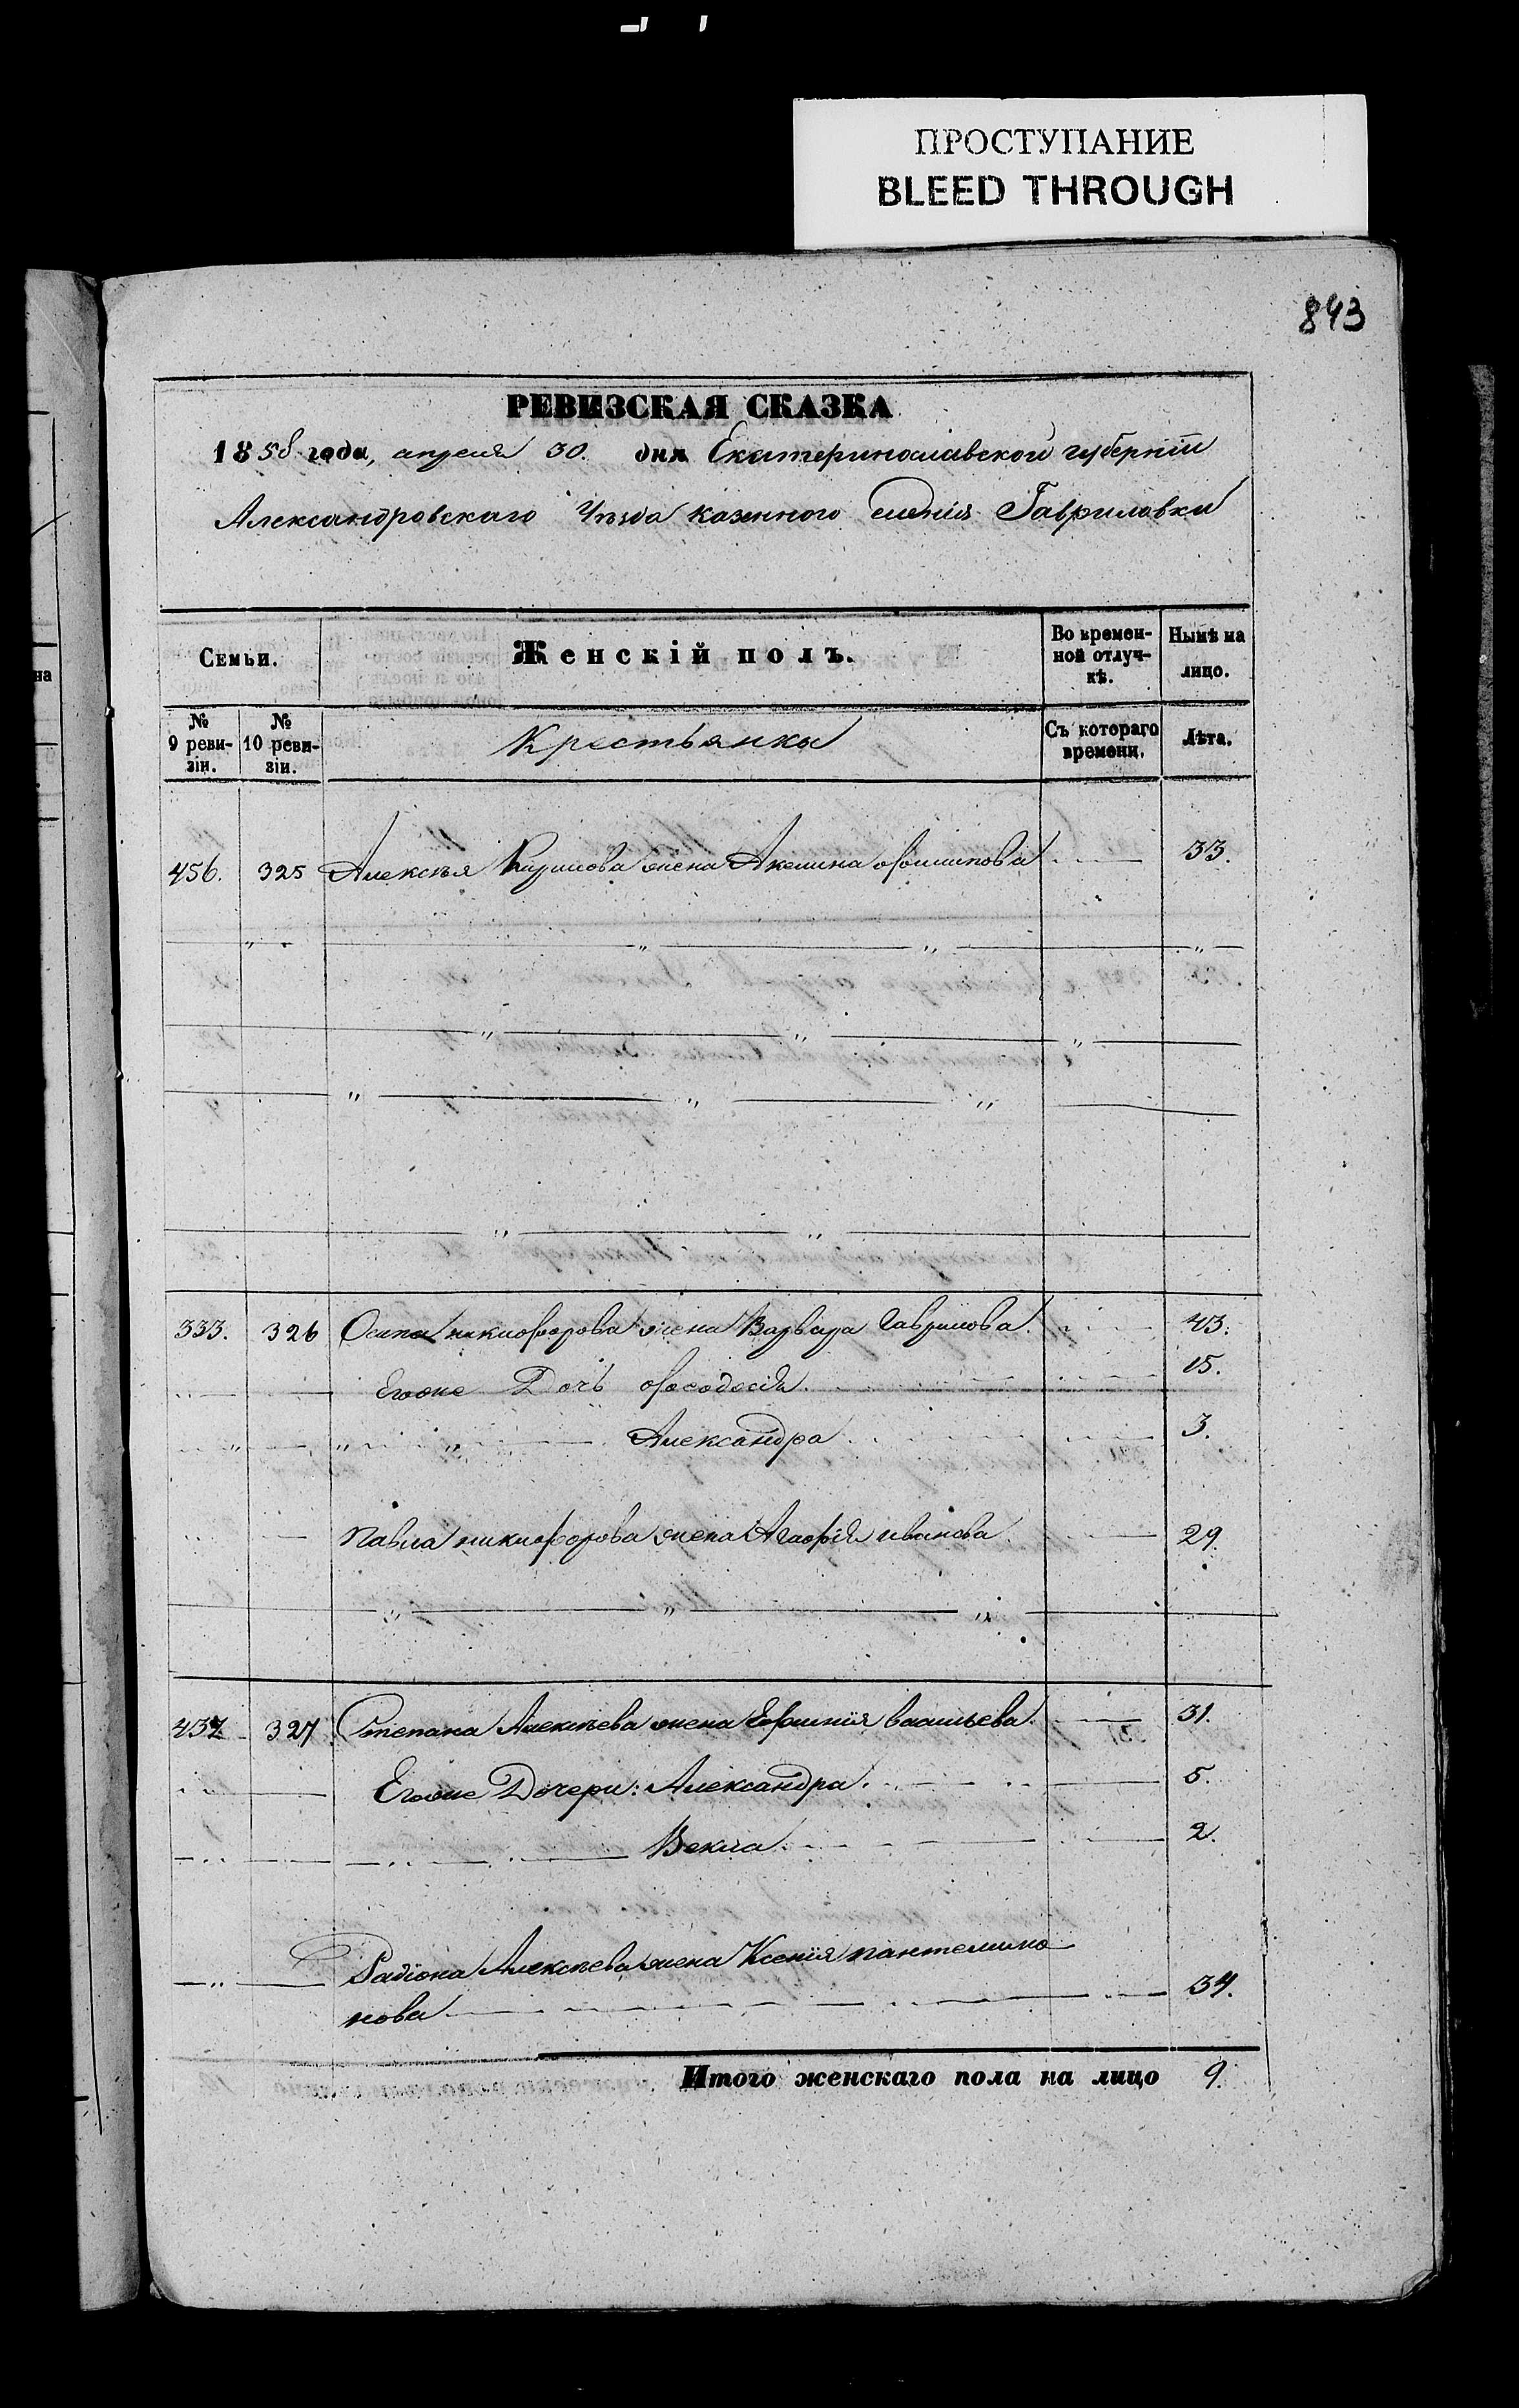 ПРОСТУПАНИЕ
BLEED THROUGH
843
РЕВИЗСКАЯ СКАЗКА
1858 года, апреля 30. дня Екатеринославской губерніи
Александровскаго Уѣзда казенного селенія Гавриловки
Семьи. Женскій полъ. Во времен-ной отлуч-кѣ. Нынѣ на лицо.
№ 9 реви-зіи. № 10 реви-зіи. Крестьянки Съ котораго времени. Лѣта.
456. 325 Алексѣя Кирилова жена Акелина Филипова 33.
333. 326 Осипа никифорова жена Варвара Гаврилова. 43.
Егоже Дочь Феодосія. 15.
Александра 3.
Павла никифорова жена Агафія иванова 29.
437. 327 Степана Алексѣева жена Ефимія васильева. 31.
Егоже Дочери: Александра. 5.
Векла. 2.
Радіона Алексѣева жена Ксенія пантелимо
нова 34.
Итого женскаго пола на лицо 9.